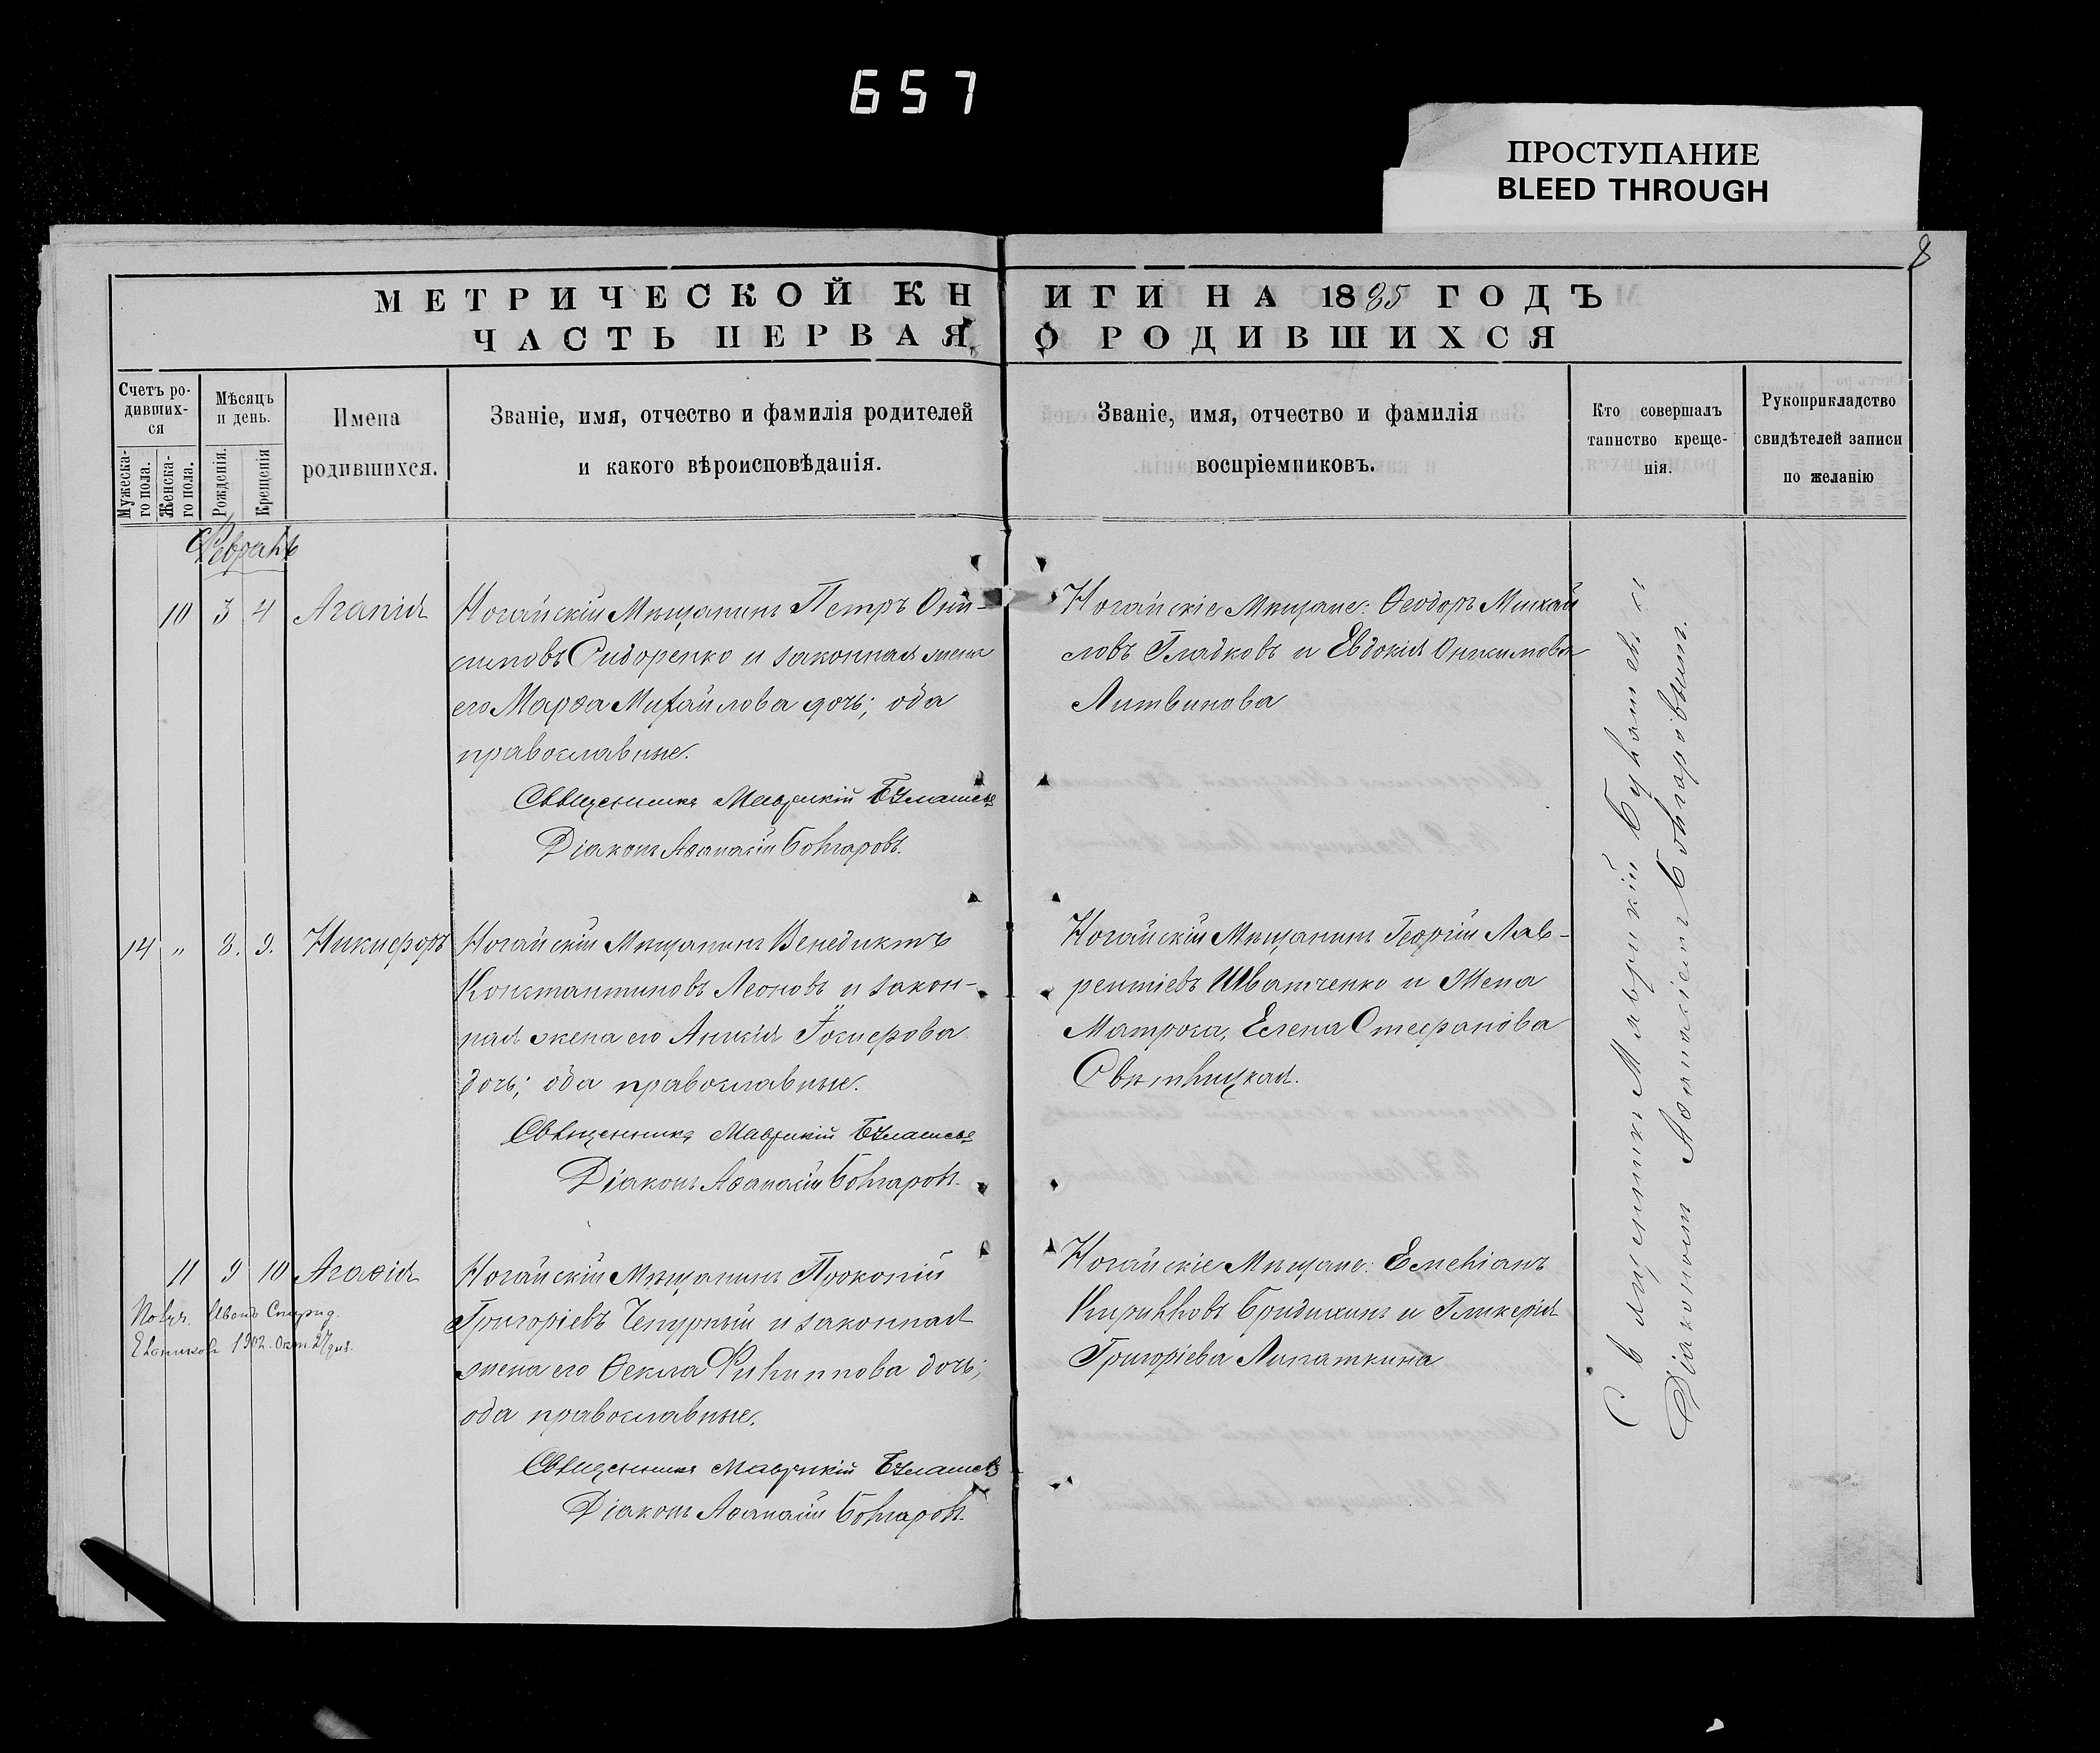 657
ПРОСТУПАНИЕ
BLEED THROUGH
8
МЕТРИЧЕСКОЙ КНИГИ НА 1885 ГОДЪ
ЧАСТЬ ПЕРВАЯ О РОДИВШИХСЯ
Счетъ ро-
дивших-
ся
Мужеска-
го пола.
Женска-
го пола.
Мѣсяцъ
и день.
Рожденія.
Крещенія
Имена
родившихся.
Званіе, имя, отчество и фамилія родителей
и какого вѣроисповѣданія.
Званіе, имя, отчество и фамилія
воспріемниковъ.
Кто совершалъ
таинство креще-
нія.
Рукоприкладство
свидѣтелей записи
по желанію
Февраль
10 3 4 Агапія
Ногайскій Мѣщанинъ Петръ Они-
симовъ Сидоренко и законная жена
его Марѳа Михайлова дочь; оба
православные.
Священникъ Маврикій
Діаконъ Аѳанасій Болгаровъ.
Ногайскіе Мѣщане: Ѳеодоръ Михай
ловъ Гладковъ и Евдокія Онисимова
Литвинова
14 " 8. 9. Никифоръ
Ногайскій Мѣщанинъ Венедиктъ
Константиновъ Леоновъ и закон-
ная жена его Іосифова
дочь; оба православные.
Священникъ Маврикій
Діаконъ Аѳанасій Болгаровъ.
Ногайскій Мѣщанинъ Георгій Лав-
рентіевъ Иватченко и жена
Матроса, Елена Стефанова
11 9 10 Агаѳія
Спирид.
1902. Окт. 27 дня.
Ногайскій Мѣщанинъ Прокопій
Григоріевъ Чепурный и законная
жена его Ѳекла Филиппова дочь;
оба православные.
Священникъ Маврикій
Діаконъ Аѳанасій Болгаровъ.
Ногайскіе Мѣщане: Емеліанъ
Кирилловъ и Гликерія
Григоріева Липаткина
Священникъ Маврикій
Діакономъ Аѳанасіемъ Болгаровымъ.